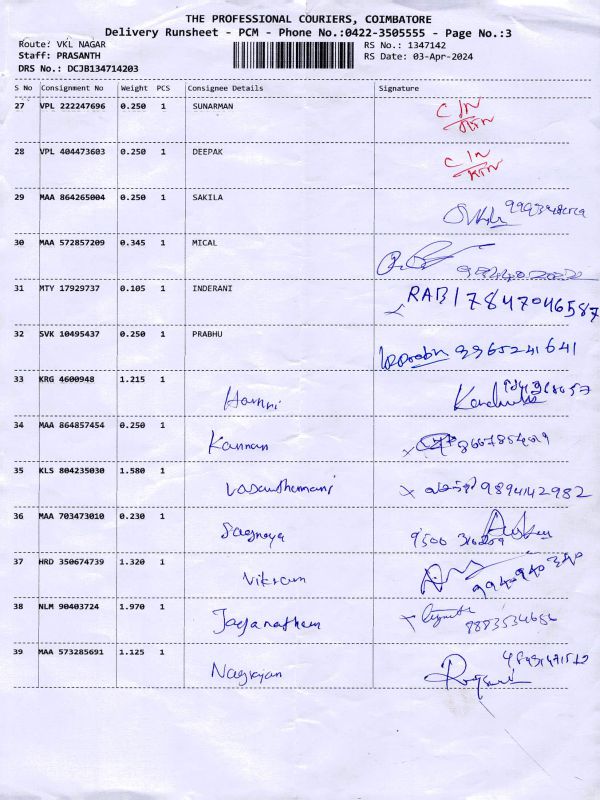 THE PROFESSIONAL COURIERS, COIMBATORE
Delivery Runsheet - PCM - Phone No.:0422-3505555 - Page No.:3
Route: VKL NAGAR RS No.: 1347142
Staff: PRASANTH RS Date: 03-Apr-2024
DRS No.: DCJB134714203
S No Consignment No Weight PCS Consignee Details Signature
27 VPL 222247696 0.250 1 SUNARMAN C/N
28 VPL 404473603 0.250 1 DEEPAK C/N
29 MAA 864265004 0.250 1 SAKILA
30 MAA 572857209 0.345 1 MICAL
31 MTY 17929737 0.105 1 INDERANI RABI 7847046587
32 SVK 10495437 0.250 1 PRABHU 9965241641
33 KRG 4600948 1.215 1 Hamni
34 MAA 864857454 0.250 1 Kannan
35 KLS 804235030 1.580 1 Vasanthamani 9894142982
36 MAA 703473010 0.230 1 9500
37 HRD 350674739 1.320 1 Vikram 9940940340
38 NLM 90403724 1.970 1 Jaganathan 8883534656
39 MAA 573285691 1.125 1 Nagrajan